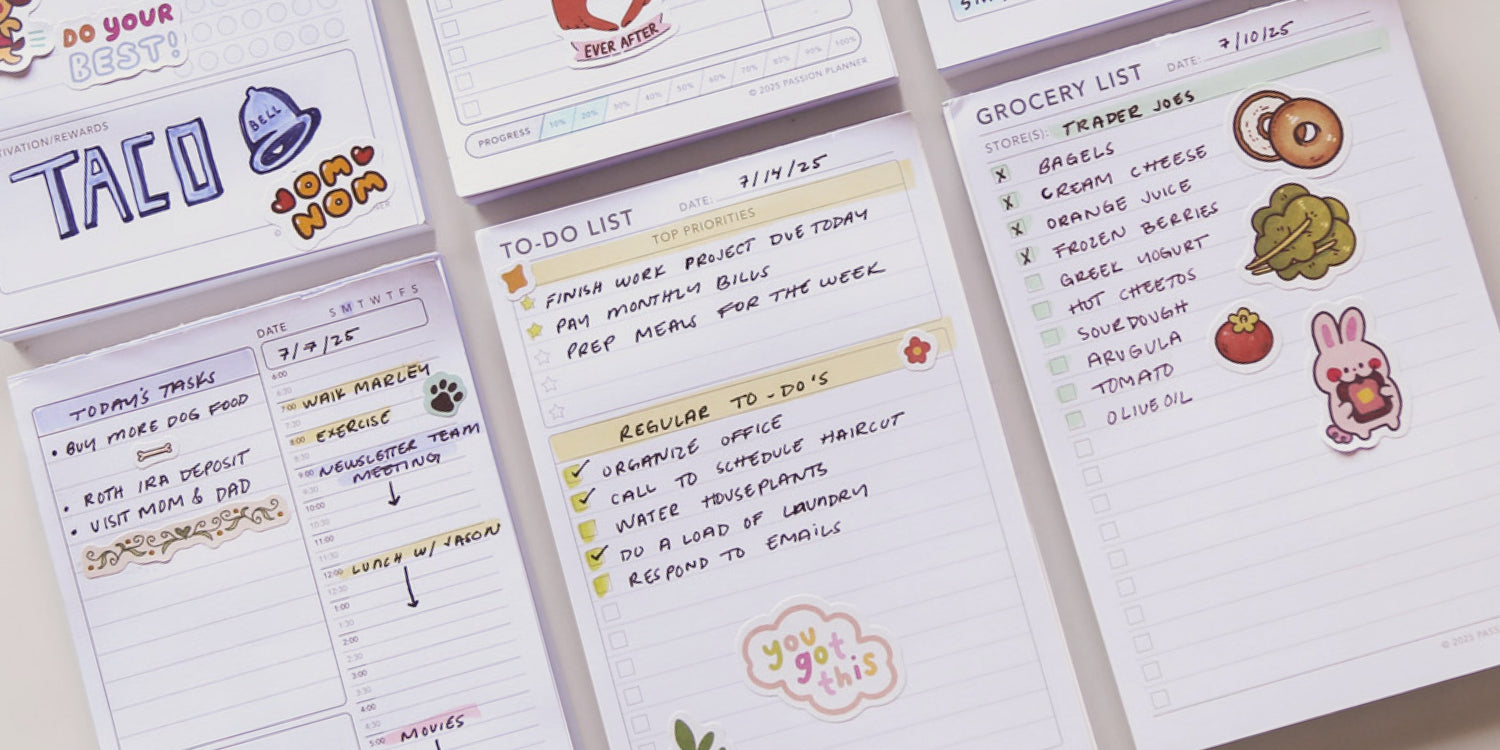 DO YOUR
BEST!
TIVATION/REWARDS
TACO
BELL
NOM
NOM
EVER AFTER
PROGRESS 10% 20% 30% 40% 50% 60% 70% 80% 90% 100%
© 2025 PASSION PLANNER
DATE S M T W T F S
7/7/25
TODAY'S TASKS
• BUY MORE DOG FOOD
• ROTH IRA DEPOSIT
• VISIT MOM & DAD
6:00
6:30
7:00 WALK MARLEY
7:30
8:00 EXERCISE
8:30
9:00 NEWSLETTER TEAM
9:30 MEETING
10:00
10:30
11:00
11:30
12:00 LUNCH W/ JASON
12:30
1:00
1:30
2:00
2:30
3:00
3:30
4:00
4:30
5:00 MOVIES
TO-DO LIST DATE: 7/14/25
TOP PRIORITIES
FINISH WORK PROJECT DUE TODAY
PAY MONTHLY BILLS
PREP MEALS FOR THE WEEK
REGULAR TO-DO'S
ORGANIZE OFFICE
CALL TO SCHEDULE HAIRCUT
WATER HOUSEPLANTS
DO A LOAD OF LAUNDRY
RESPOND TO EMAILS
you
got
this
GROCERY LIST DATE: 7/10/25
STORE(S): TRADER JOES
X BAGELS
X CREAM CHEESE
X ORANGE JUICE
X FROZEN BERRIES
GREEK YOGURT
HOT CHEETOS
SOURDOUGH
ARUGULA
TOMATO
OLIVE OIL
© 2025 PASSI